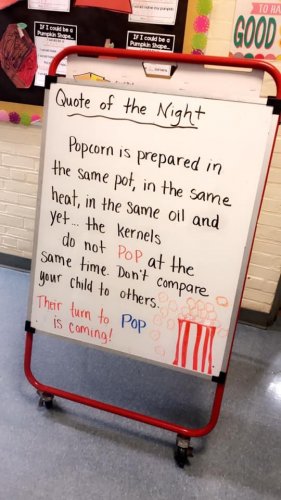 If I could be a
Pumpkin Shape...
If I could be a
Pumpkin Shape...
TO HA
GOOD
Quote of the Night
Popcorn is prepared in
the same pot, in the same
heat, in the same oil and
yet... the kernels
do not POP at the
same time. Don't compare
your child to others.
Their turn to POP
is coming!